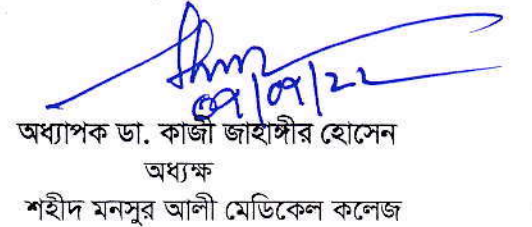 ০৭/০৭/২২
অধ্যাপক ডা. কাজী জাহাঙ্গীর হোসেন
অধ্যক্ষ
শহীদ মনসুর আলী মেডিকেল কলেজ